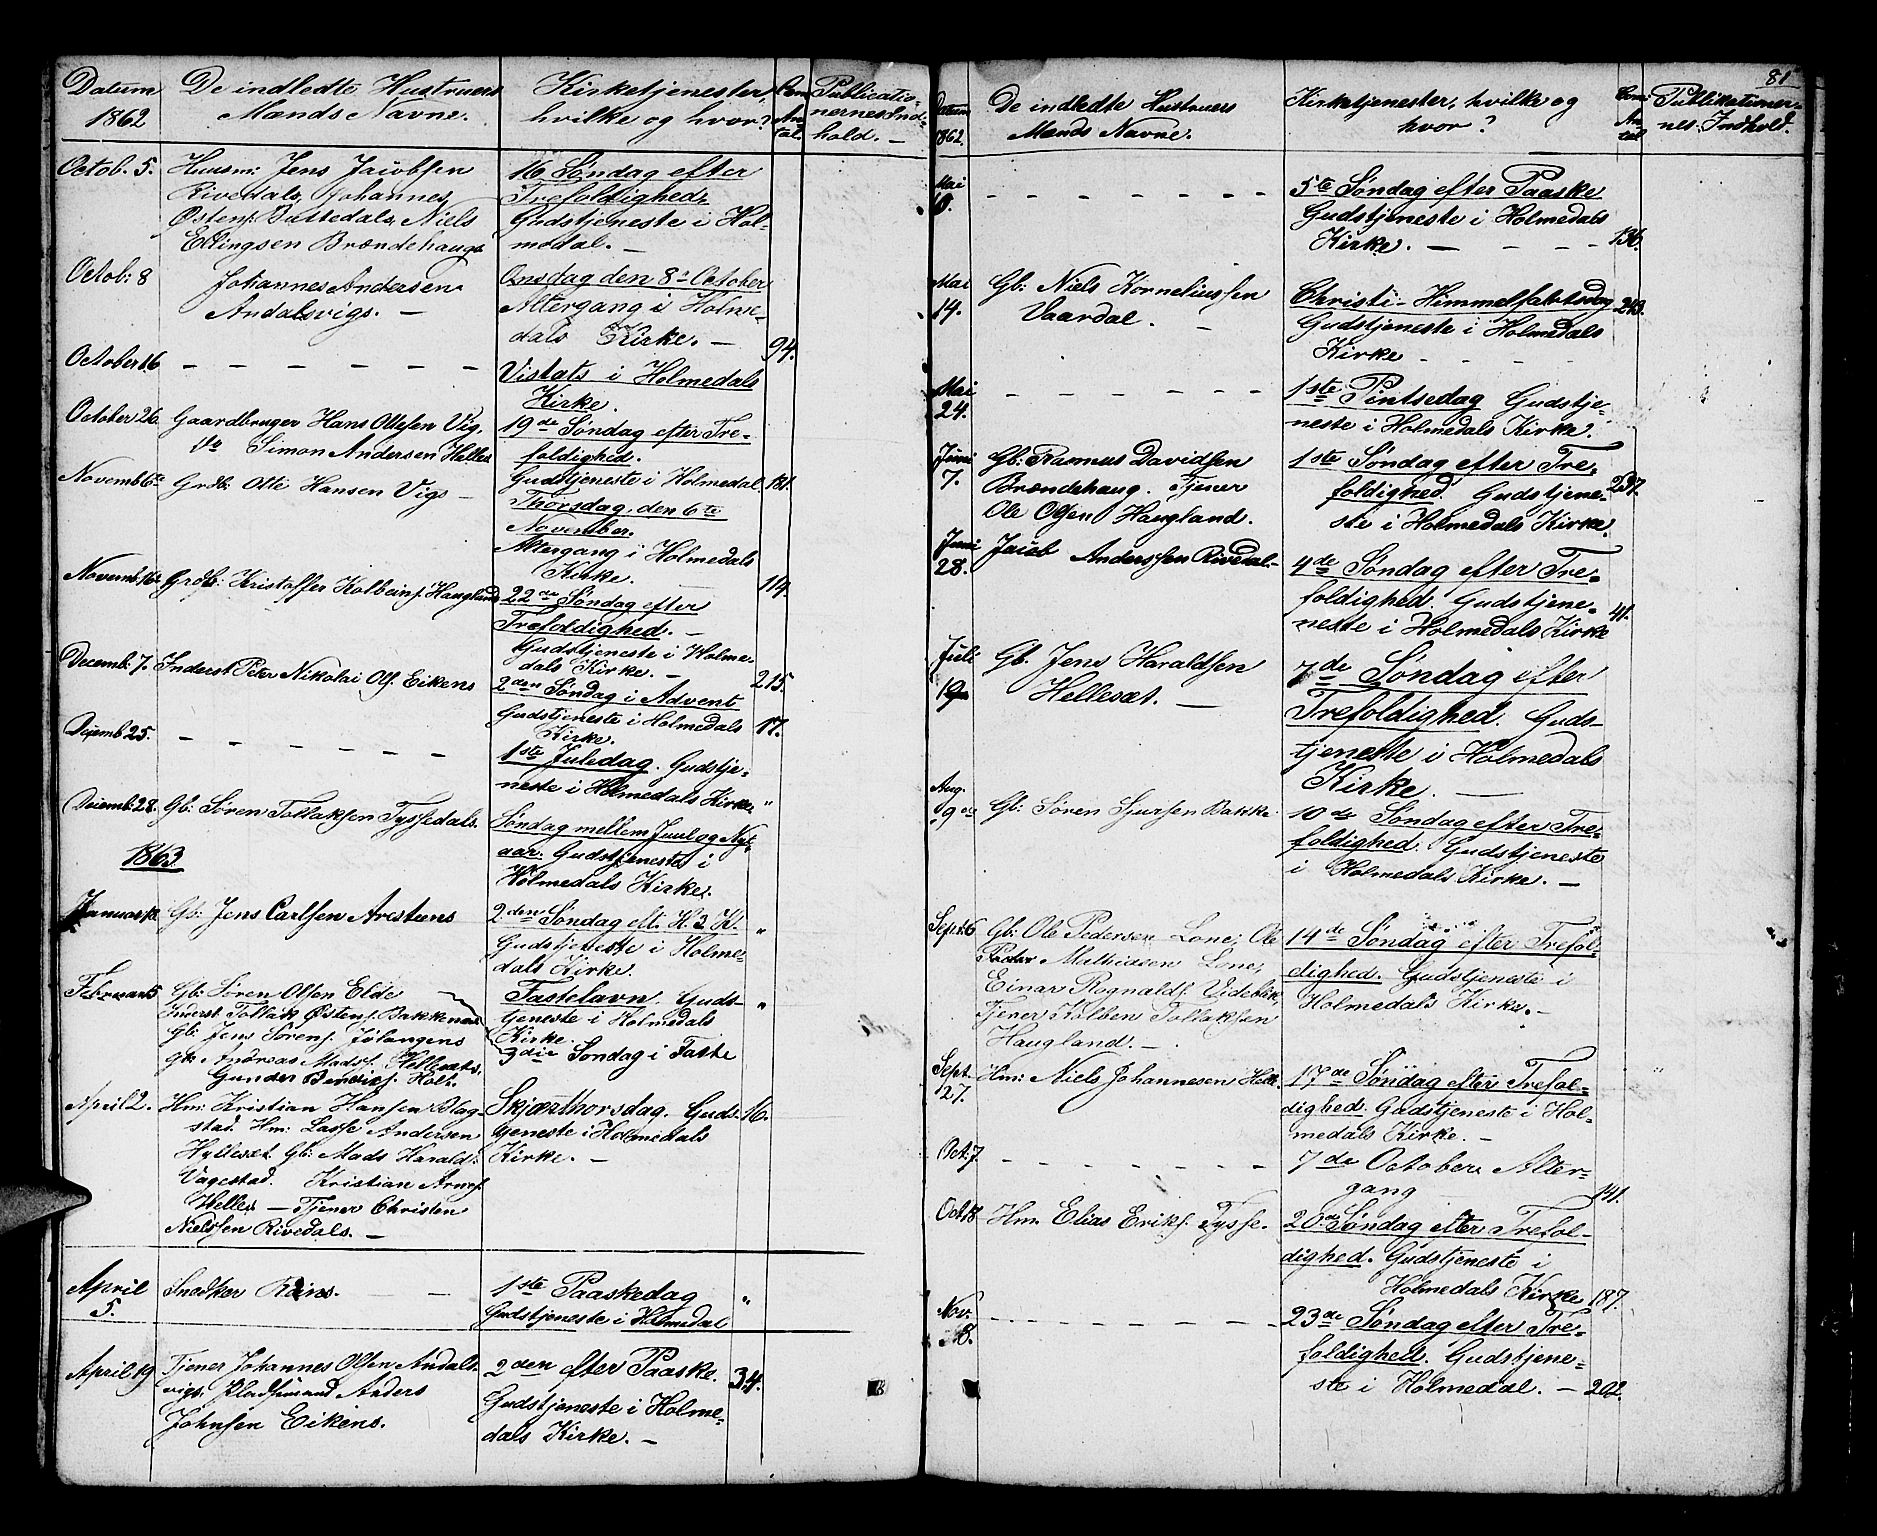 Datum
1862
De indledte Hustruers
Mænds Navne.
Kirketjenester,
hvilke og hvor?
Com
An
tal.
Publicatio-
nernes Ind-
hold. —
Octob. 5.
Huusm: Jens Jacobsen
Rivedals, Johannes
Østens. Battedals, Niels
Ellingsen Brændehaugs
16 Søndag efter
Trefoldighed.
Gudstjeneste i Hol-
medal. —
Octob: 8
Johannes Andersen
Andalsvigs. —
Onsdag den 8de October
Altergang i Holme-
dals Kirke. — 94.
October 16 — — — — — —
Vistats i Holmedals
Kirke.
October 26.
Gaardbruger Hans Ollesen Vig.
do Simon Andersen Helles
19de Søndag efter Tre-
foldighed.
Gudstjeneste i Holmedal. 181.
Novemb 6te
Grdb: Otte Hansen Vigs —
Thorsdag, den 6te
November.
Altergang i Holmedals
Kirke. 114.
Novemb. 16de
Grdb: Kristoffer Kolbeins. Haugland
22de Søndag efter
Trefoldighed. —
Gudstjeneste i Holme-
dals Kirke. — 215.
Decemb: 7.
Inderst Peter Nikolai Ols. Eikens
2den Søndag i Advent
Gudstjeneste i Holmedals 17.
Kirke.
Decemb 25. — — — — — —
1ste Juledag. Gudstje-
neste i Holmedals Kirke "
Decemb: 28.
Gb: Søren Tollaksen Tyssedals.
Søndag mellem Juul og Nyt-
aar. Gudstjeneste i
Holmedals Kirke.
1863
Januar
Gb: Jens Carlsen Arestuens
2den Søndag eft. H. 3 K. "
Gudstjeneste i Holme-
dals Kirke.
Februar 15
Gb: Søren Olsen Elde
Inderst Tollak Østens. Bakkenæs
Gb: Jens Sørens. Jølangens
Gb Andreas Mads. Hellesæts.
Gunder Bendix. Holt.
Fastelavn. Guds- "
tjeneste i Holmedals
Kirke.
3die Søndag i Faste
April 2.
Hm: Kristian Hansen Blag-
stad. Hm: Lasse Andersen
Hyllesæt Gb: Mads Harald.
Vagestad. Kristian Arnes.
Helles — Tjener Christen
Nielsen Rivedals. —
Skjærthorsdag. Guds- 16.
tjeneste i Holmedals
Kirke. —
April
5.
Snedker Reins. — —
1ste Paaskedag "
Gudstjeneste i Holmedal
April 19
Tjener Johannes Olsen Andals-
vigs. Pladsmand Anders
Johnsen Eikens.
2den efter Paaske. 34.
Gudstjeneste i Holme-
dals Kirke. —
81
Datum
1862.
De indledte Hustruers
Mænds Navne.
Kirketjenester, hvilke og
hvor?
Com
An
tal
Publikationer-
nes Indhold.
Mai
10. — — — — — —
5te Søndag efter Paaske
Gudstjeneste i Holmedals
Kirke. — — — — 136.
Mai
14.
Gb: Niels Korneliussen
Vaardal. —
Christi-Himmelfahrtsdag 243.
Gudstjeneste i Holmedals
Kirke — — — —
Mai
24. — — — — — —
1ste Pintsedag Gudstje-
neste i Holmedals Kirke.
Juni
7.
Gb: Rasmus Davidsen
Brændehaug. Tjener
Ole Olsen Haugland.
1ste Søndag efter Tre-
foldighed. Gudstjene- 237.
ste i Holmedals Kirke.
Juni
28.
Jacob Anderssen Rivedal. —
4de Søndag efter Tre-
foldighed. Gudstjene- 41.
neste i Holmedals Kirke
Juli
19
Gb. Jens Haraldsen
Hellesæt. —
7de Søndag efter
Trefoldighed. Guds-
tjeneste i Holmedals
Kirke. —
Aug.
9de
Gb: Søren Sjursen Bakke
10de Søndag efter Tre-
foldighed. Gudstjeneste
i Holmedals Kirke. —
Sept. 6
Gb: Ole Pedersen Lone; Ole
Peder Mathiesen Lone;
Einar Rognalds. Videblik.
Tjener Kolben Tollaksen
Haugland. —
14de Søndag efter Trefol-
dighed. Gudstjeneste i
Holmedals Kirke. —
Sept.
27.
Hm: Niels Johannesen Helle.
17de Søndag efter Trefol-
dighed. Gudstjeneste i Hol-
medals Kirke. —
Oct. 7. — — — — — —
7de October Alter-
gang — 141.
Oct. 18
Hm. Elias Eriks. Tysse.
20de Søndag efter Trefol-
dighed. Gudstjeneste i
Holmedals Kirke 187.
Nov.
8. — — — — — —
23de Søndag efter Tre-
foldighed. Gudstjene-
ste i Holmedal. — 202.